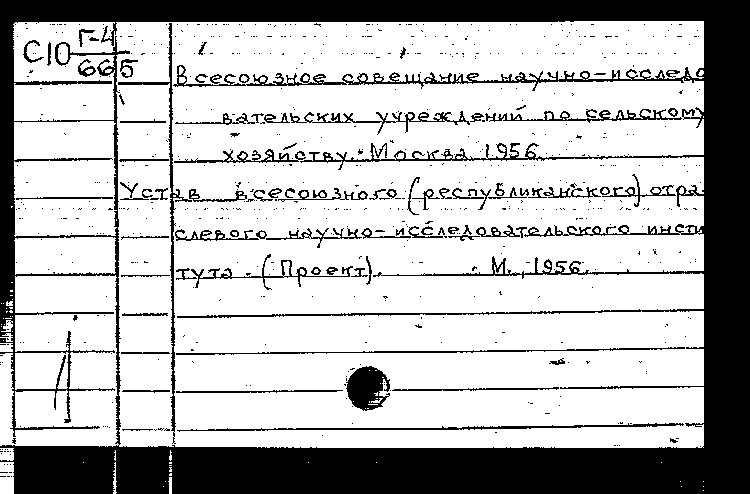 С10 Г-4
665
Всесоюзное совещание научно-исследо
вательских учреждений по сельскому
хозяйству. Москва 1956
Устав всесоюзного (республиканского) отра-
слевого научно-исследовательского инсти
тута. (Проект). М., 1956.
1